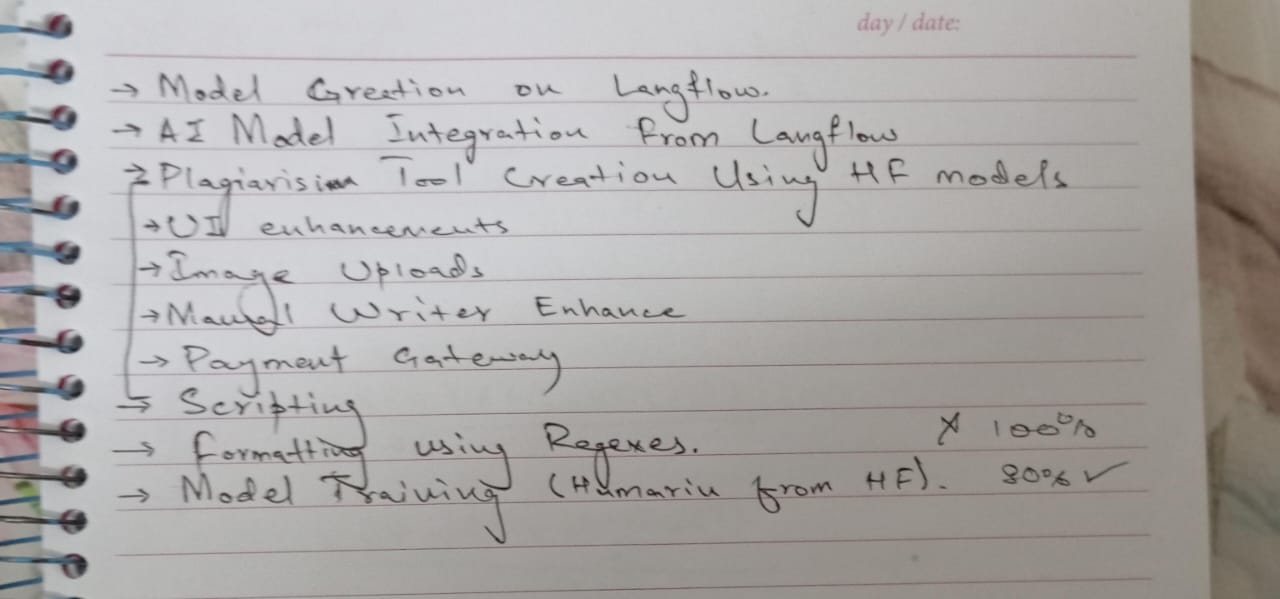 day / date:
→ Model Creation on Langflow.
→ AI Model Integration from Langflow
→ Plagiarisim Tool Creation Using HF models
→ UI enhancements
→ Image Uploads
→ Manual Writer Enhance
→ Payment Gateway
→ Scripting
→ Formatting using Regexes. X 100%
→ Model Training (Humariu from HF). 80% ✓